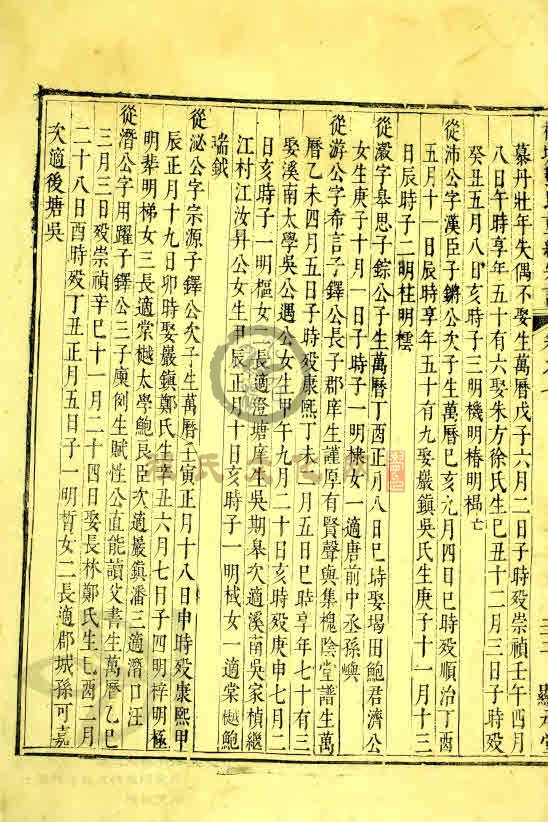 慕丹壯年失偶不娶生萬曆戊子六月二日子時歿崇禎壬午四月
八日午時享年五十有六娶朱方徐氏生己丑十二月三日子時歿
癸丑五月八日亥時子三明機明椿明楊亡
從沛公字漢臣子鏘公次子生萬曆己亥九月四日巳時歿順治丁酉
五月十一日辰時享年五十有九娶嚴鎮吳氏生庚子十一月十三
日辰時子二明柱明橒
從瀫字皋思子錝公子生萬曆丁酉正月八日巳時娶堨田鮑君濟公
女生庚子十月一日子時子一明棣女一適唐前中丞孫嶼
從游公字希言子鐸公長子郡庠生謹厚有賢聲與集槐陰堂譜生萬
曆乙未四月五日子時歿康熙丁未 月五日巳時享年七十有三
娶溪南太學吳公遇公女生甲午九月二十日亥時歿庚申七月二
日亥時子一明樞女二長適澄塘庠生吳期皋次適溪南吳家楨繼
江村江汝昇公女生甲辰正月十日亥時子一明棫女一適棠樾鮑
瑞鉞
從泌公字宗源子鐸公次子生萬曆壬寅正月十八日申時歿康熙甲
辰正月十九日卯時娶嚴鎮鄭氏生辛丑六月七日子四明梓明極
明棐明梯女三長適棠樾太學鮑良臣次適嚴鎮潘三適潛口汪
從潛公字用躍子鐸公三子廩例生賦性公直能讀父書生萬曆乙巳
三月三日歿崇禎辛巳十一月二十四日娶長林鄭氏生乙酉二月
二十八日酉時歿丁丑正月五日子一明晳女二長適郡城孫可嘉
次適後塘吳